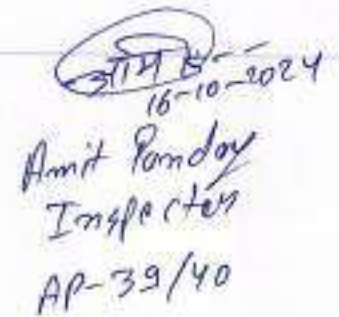 अमित
16-10-2024
Amit Panday
Inspector
AP-39/40